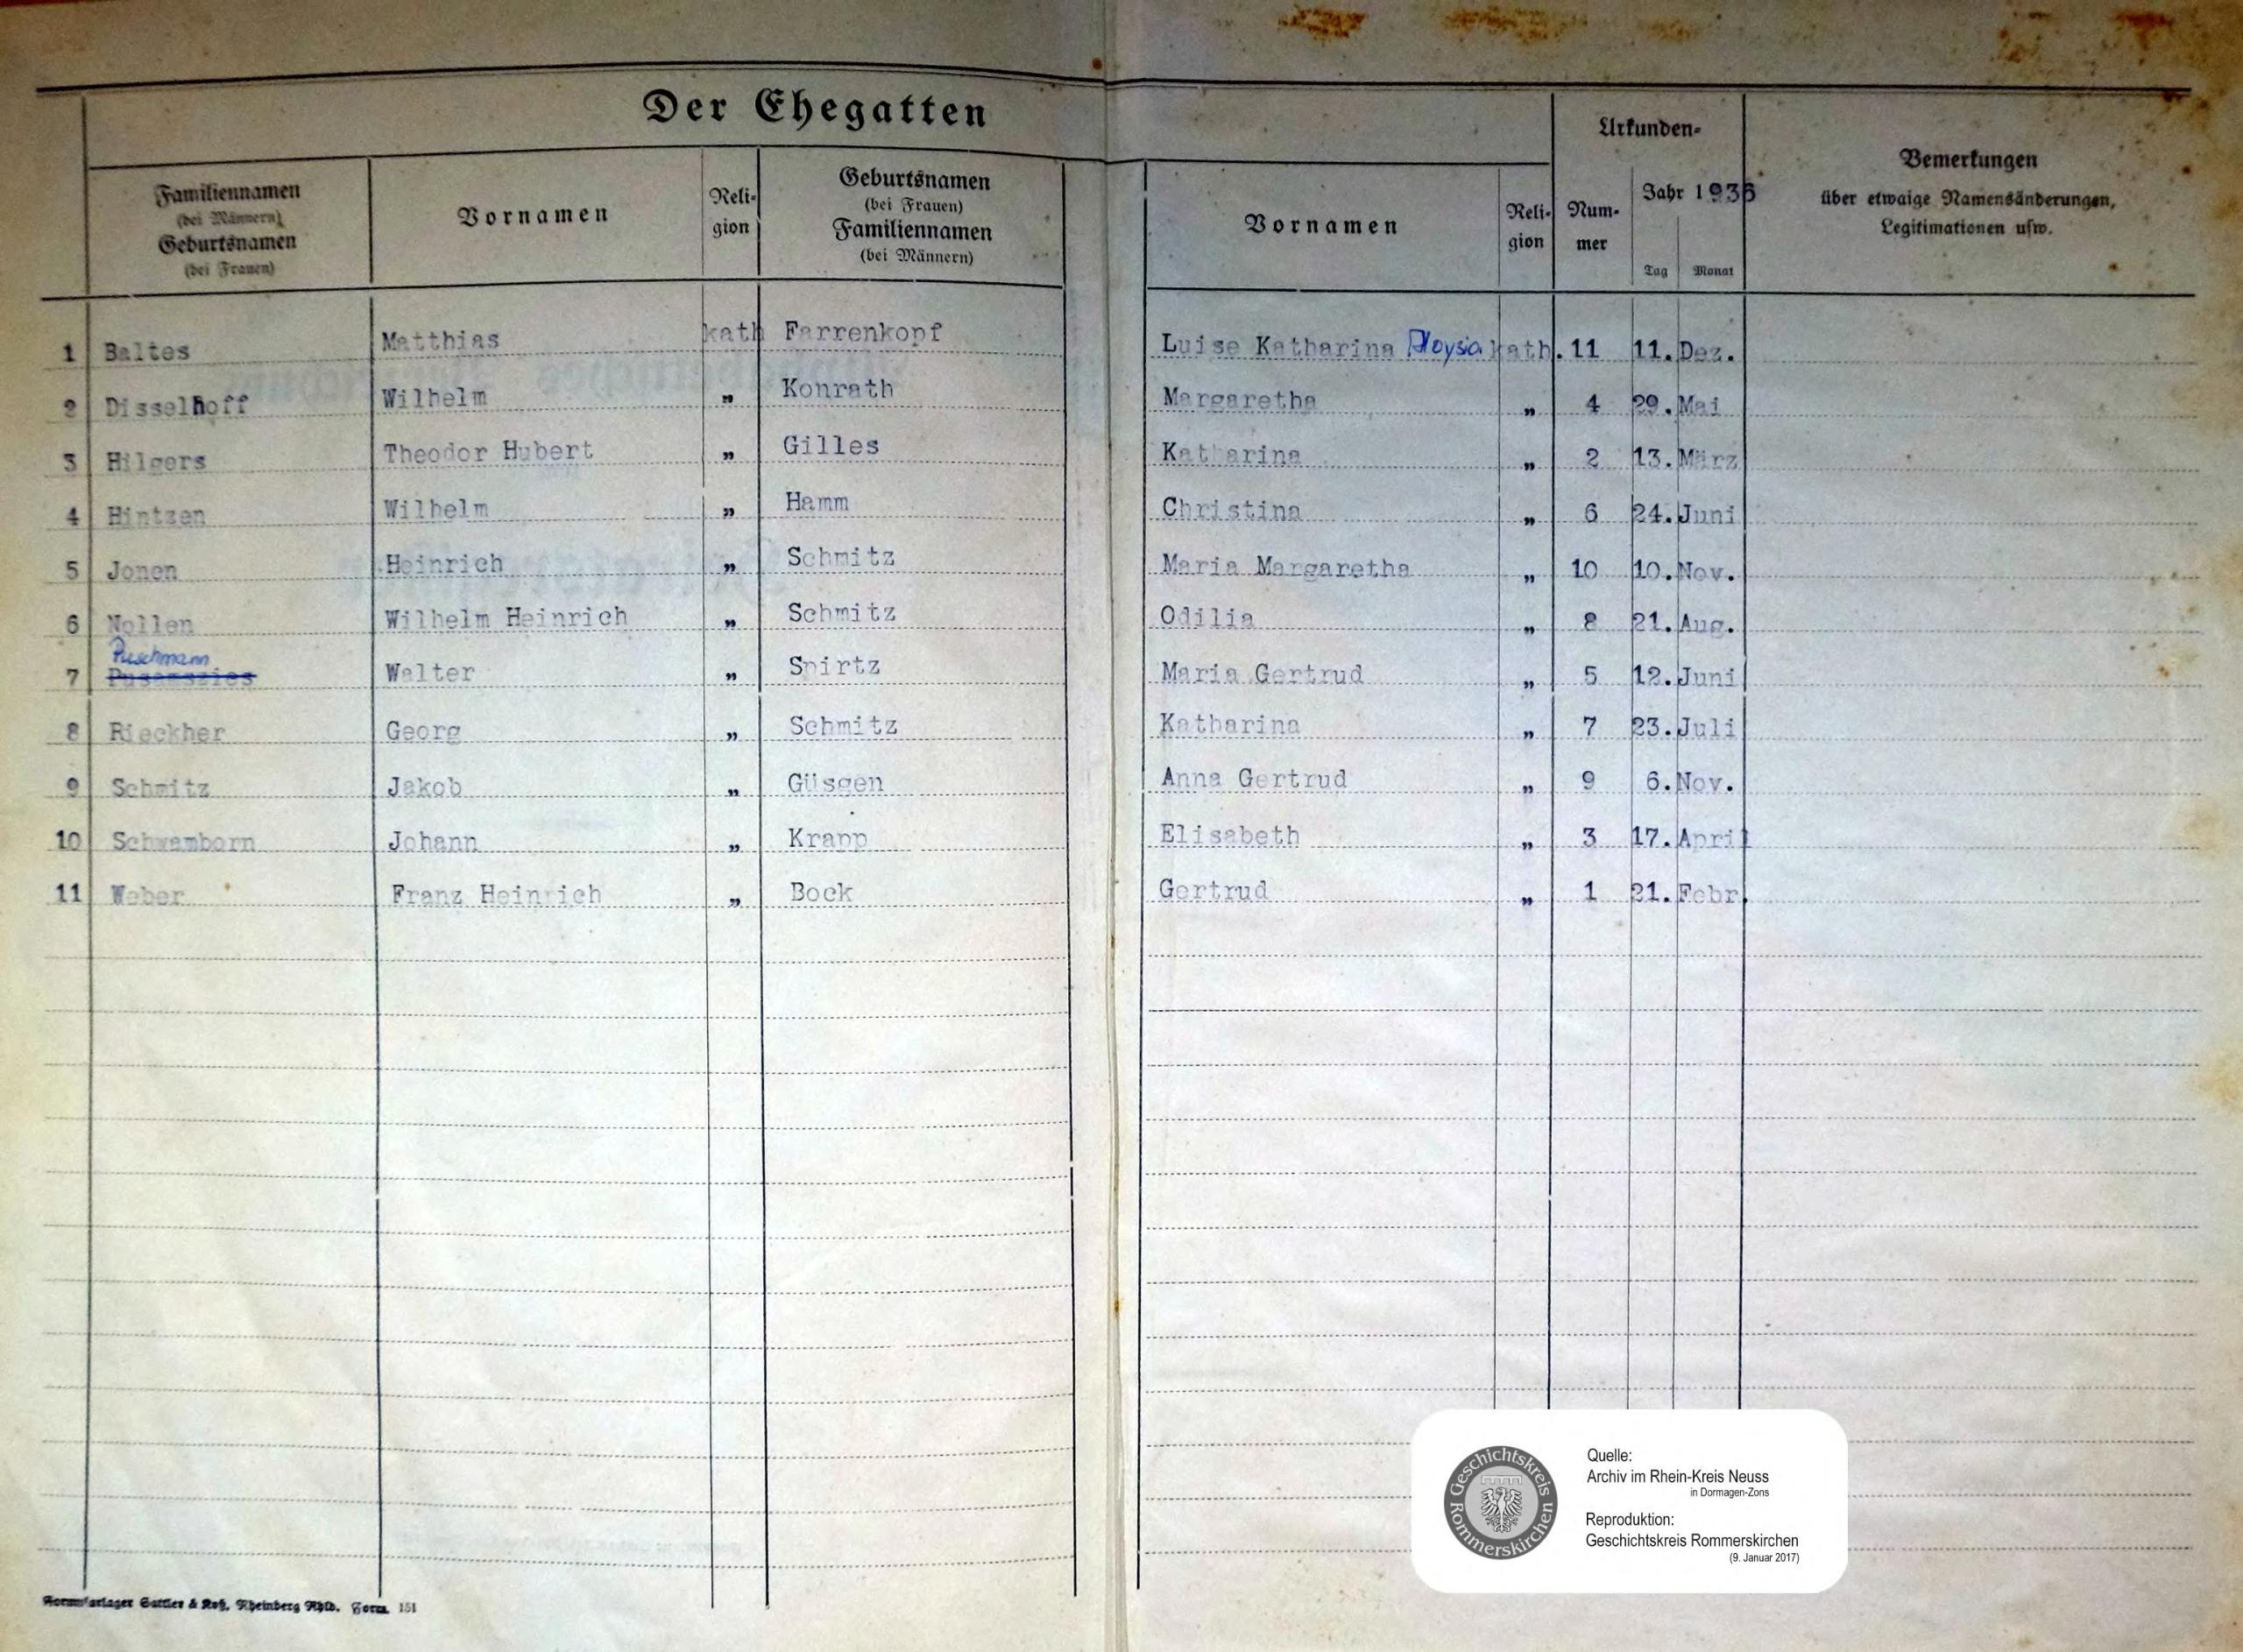 Der Ehegatten
Familiennamen
(bei Männern)
Geburtsnamen
(bei Frauen)
Vornamen
Reli-
gion
Geburtsnamen
(bei Frauen)
Familiennamen
(bei Männern)
Vornamen
Reli-
gion
Urkunden-
Num-
mer
Jahr 1936
Tag Monat
Bemerkungen
über etwaige Namensänderungen,
Legitimationen usw.
1 Baltes Matthias kath Farrenkopf Luise Katharina Aloysia kath. 11 11. Dez.
2 Disselhoff Wilhelm „ Konrath Margaretha „ 4 29. Mai
3 Hilgers Theodor Hubert „ Gilles Katharina „ 2 13. März
4 Hintzen Wilhelm „ Hamm Christina „ 6 24. Juni
5 Jonen Heinrich „ Schmitz Maria Margaretha „ 10 10. Nov.
6 Nollen Wilhelm Heinrich „ Schmitz Odilia „ 8 21. Aug.
Puschmann
7 Walter „ Spirtz Maria Gertrud „ 5 12. Juni
8 Rieckher Georg „ Schmitz Katharina „ 7 23. Juli
9 Schmitz Jakob „ Güsgen Anna Gertrud „ 9 6. Nov.
10 Schwamborn Johann „ Krapp Elisabeth „ 3 17. April
11 Weber Franz Heinrich „ Bock Gertrud „ 1 21. Febr.
Formularlager Sattler & Koß, Rheinberg Rhld. Form. 151
Geschichtskreis Rommerskirchen
Quelle:
Archiv im Rhein-Kreis Neuss
in Dormagen-Zons
Reproduktion:
Geschichtskreis Rommerskirchen
(9. Januar 2017)